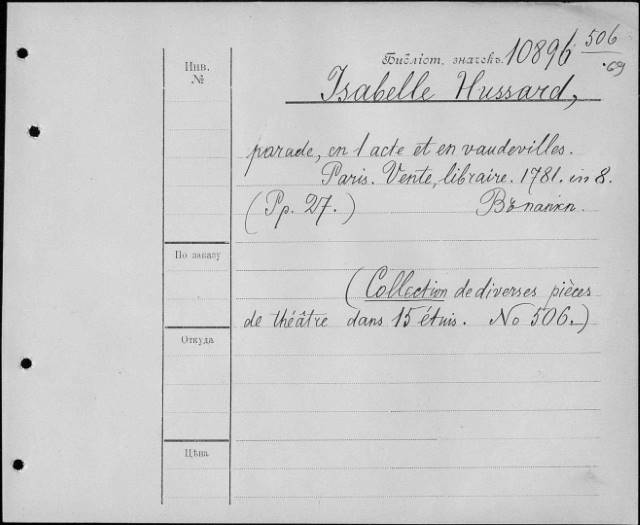 Инв. №
Библіот. значекъ. 10896 506
.69
Isabelle Hussard,
parade, en 1 acte et en vaudevilles.
Paris. Vente, libraire. 1781. in 8.
(Pp. 27.) Въ папкп.
По заказу
(Collection de diverses pièces
de théâtre dans 15 étuis. No 506.)
Откуда
Цѣна